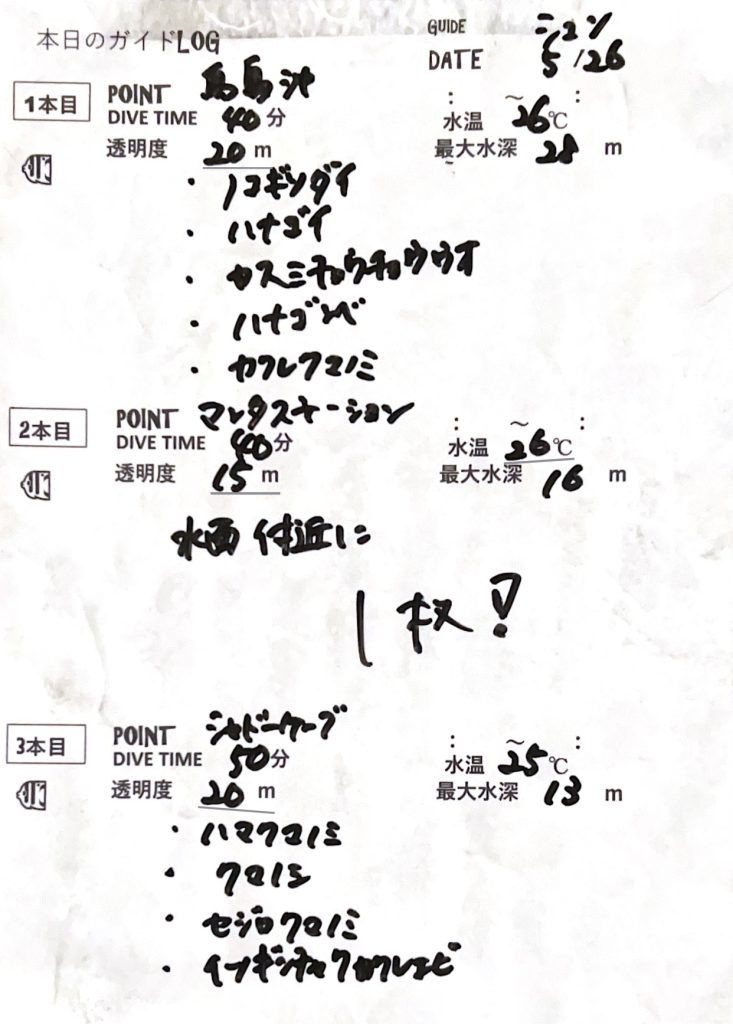 本日のガイドLOG
GUIDE シュン
DATE 5/26
1本目 POINT 鳥島沖 : ～ :
DIVE TIME 40分 水温 26℃
透明度 20m 最大水深 28m
・ノコギリダイ
・ハナゴイ
・カスミチョウチョウウオ
・ハナゴンベ
・カクレクマノミ
2本目 POINT マンタステーション : ～ :
DIVE TIME 40分 水温 26℃
透明度 15m 最大水深 16m
水面付近に
1枚!
3本目 POINT シャドーケーブ : ～ :
DIVE TIME 50分 水温 25℃
透明度 20m 最大水深 13m
・ハマクマノミ
・クマノミ
・セジロクマノミ
・イソギンチャクカクレエビ